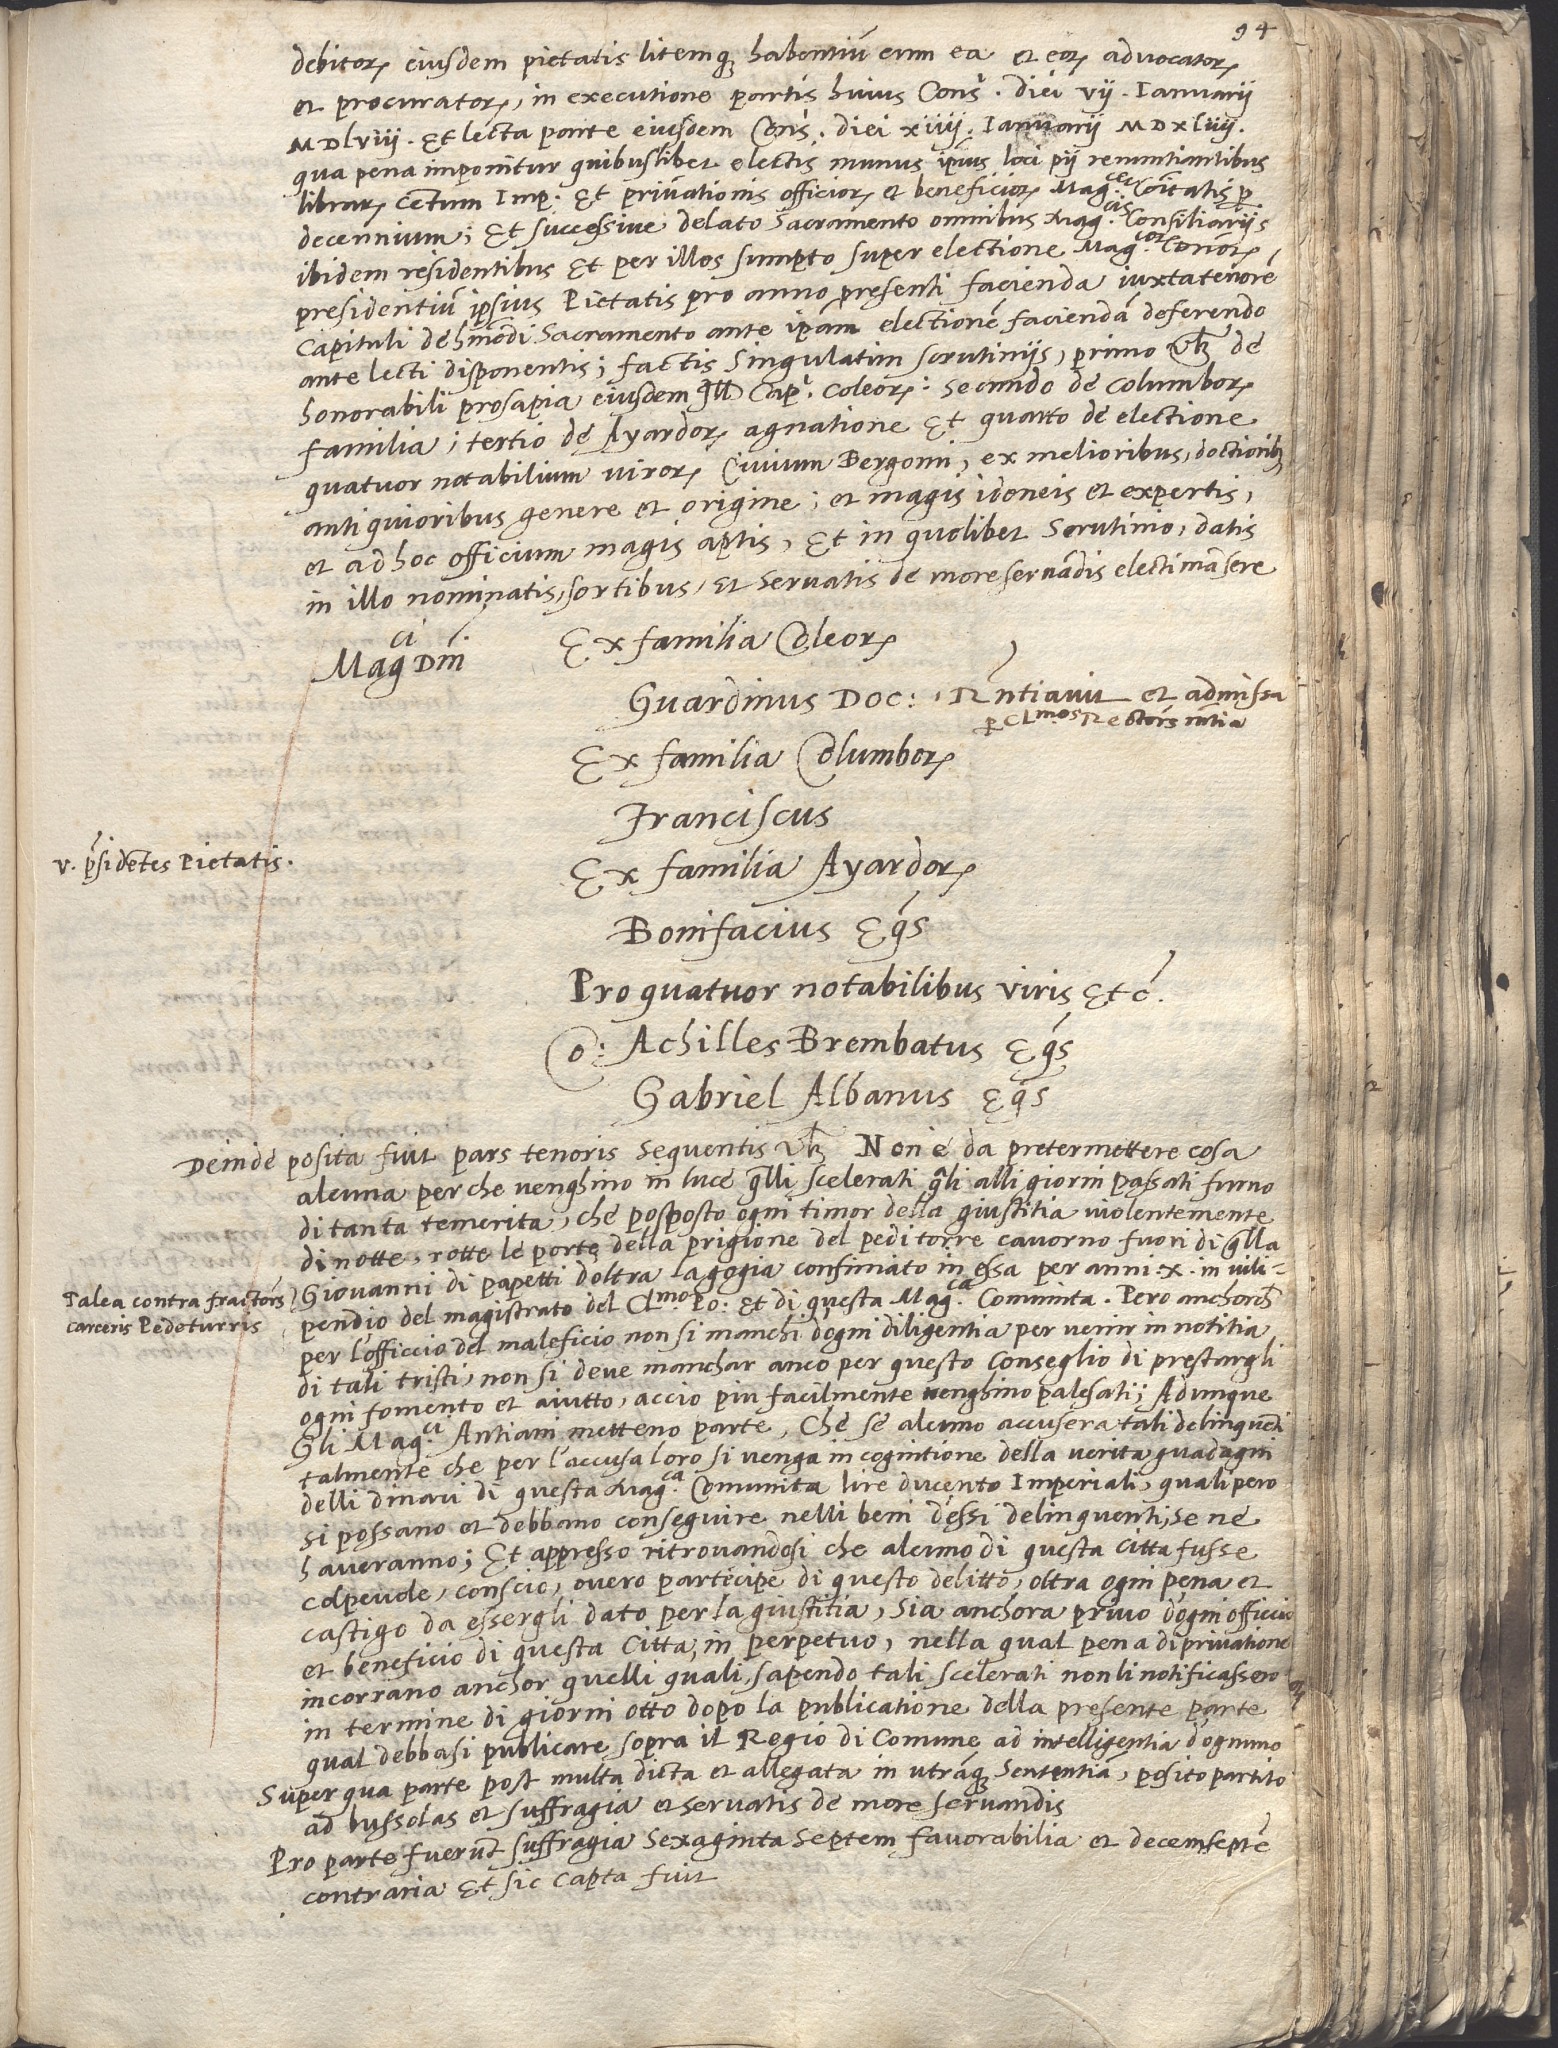 94
debitorꝝ eiusdem pietatis litemqꝫ habentiū cum ea et eorꝝ advocatorꝝ
et procuratorꝝ, in executione partis huius Cons. diei vij. Ianuarij
MDlviij. Et lecta parte eiusdem Cons. diei xiiij. Ianuarij MDXLiiij.
qua pena imponitur quibuslibet electis munus ipsius loci pij renuntiantibus
librarꝝ centum Imp. Et privationis officiorꝝ et beneficiorꝝ Mag.ce Coītatis ꝑ
decennium; Et successive delato sacramento omnibus Mag.cis Consiliarijs
ibidem residentibus Et per illos sumpto super electione Mag.corꝝ Dnorꝝ
presidentiū ipsius Pietatis pro anno presenti facienda iuxta tenorē
Capituli de hmōdi Sacramento ante ipam electionē faciendā deferendo
ante lecti disponentis; factis singulatim scrutinijs, primo vlꝫ de
honorabili prosapia eiusdem Ill. Cap. Coleorꝝ: Secundo de Columborꝝ
familia; tertio de Ayardorꝝ agnatione Et quarto de electione
quatuor notabilium virorꝝ Civium Bergomi, ex melioribus, doctioribꝫ
antiquioribus genere et origine; et magis idoneis et expertis,
et ad hoc officium magis aptis, Et in quolibet Scrutinio, datis
in illo nominatis, sortibus, et servatis de more servādis electi māsere
Mag.ci Dnī.
Ex familia Coleorꝝ
Guardinus Doc: Rn̄tiavit et admissa
ꝑ Cl.mos Rectores rn̄tia
Ex familia Columborꝝ
Franciscus
v. pn̄sidētes Pietatis.
Ex familia Ayardorꝝ
Bonifacius Eqs
Pro quatuor notabilibus viris Etc̄.
Co: Achilles Brembatus Eqs
Gabriel Albanus Eqs
Deinde posita fuit pars tenoris sequentis vlꝫ Non è da pretermettere cosa
alcuna perche venghino in luce q̄lli scelerati q̄li alli giorni passati furno
di tanta temerita, che posposto ogni timor della giustitia violentemente
di notte, rotte le porte della prigione del peditorre cavorno fuori di q̄lla
Giovanni di papetti doltra la gogia confinato in essa per anni .x. in vili-
Talea contra fractores
carceris Pedoturris
pendio del magistrato del Cl.mo Po: et di questa Mag.ca Cominita. Pero anchorch̄
per l'officio del maleficio non si manchi dogni diligentia per venir in notitia
di tali tristi, non si deve manchar anco per questo Conseglio di prestargli
ogni fomento et aiutto, accio piu facilmente venghino palesati; Adunque
Gli Mag.ci Antiani metteno parte, Che se alcuno accusera tali delinquēti
talmente che per l'accusa loro si venga in cognitione della verita, guadagni
delli dinari di questa Mag.ca Comunita lire ducento Imperiali, quali pero
si possano et debbano conseguire nelli beni dessi delinquenti, se ne
haveranno; Et appresso ritrovandosi che alcuno di questa Citta fusse
colpevole, conscio, overo partecipe di questo delitto, oltra ogni pena et
castigo da essergli dato per la giustitia, sia anchora privo dogni officio
et beneficio di questa Citta, in perpetuo, nella qual pena di privatione
incorrano anchor quelli quali, sapendo tali scelerati non li notificassero
in termine di giorni otto dopo la publicatione della presente parte
qual debbasi publicare sopra il Regio di Comune ad intelligentia dognuno
Super qua parte post multa dicta et allegata in utrāqꝫ sententiā, posito partito
ad bussolas et suffragia et servatis de more servandis
Pro parte fuerūt suffragia sexaginta septem favorabilia et decemseptē
contraria Et sic capta fuit